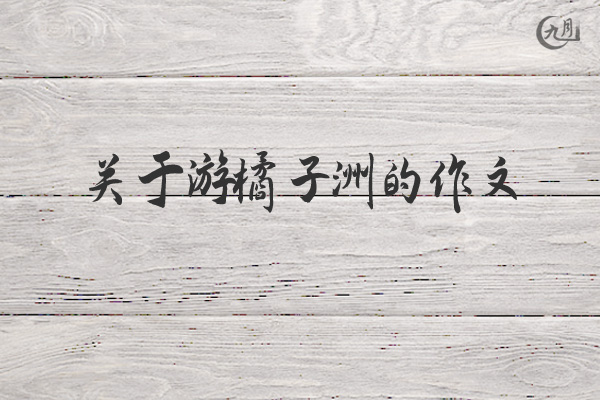 九月
关于游橘子洲的作文